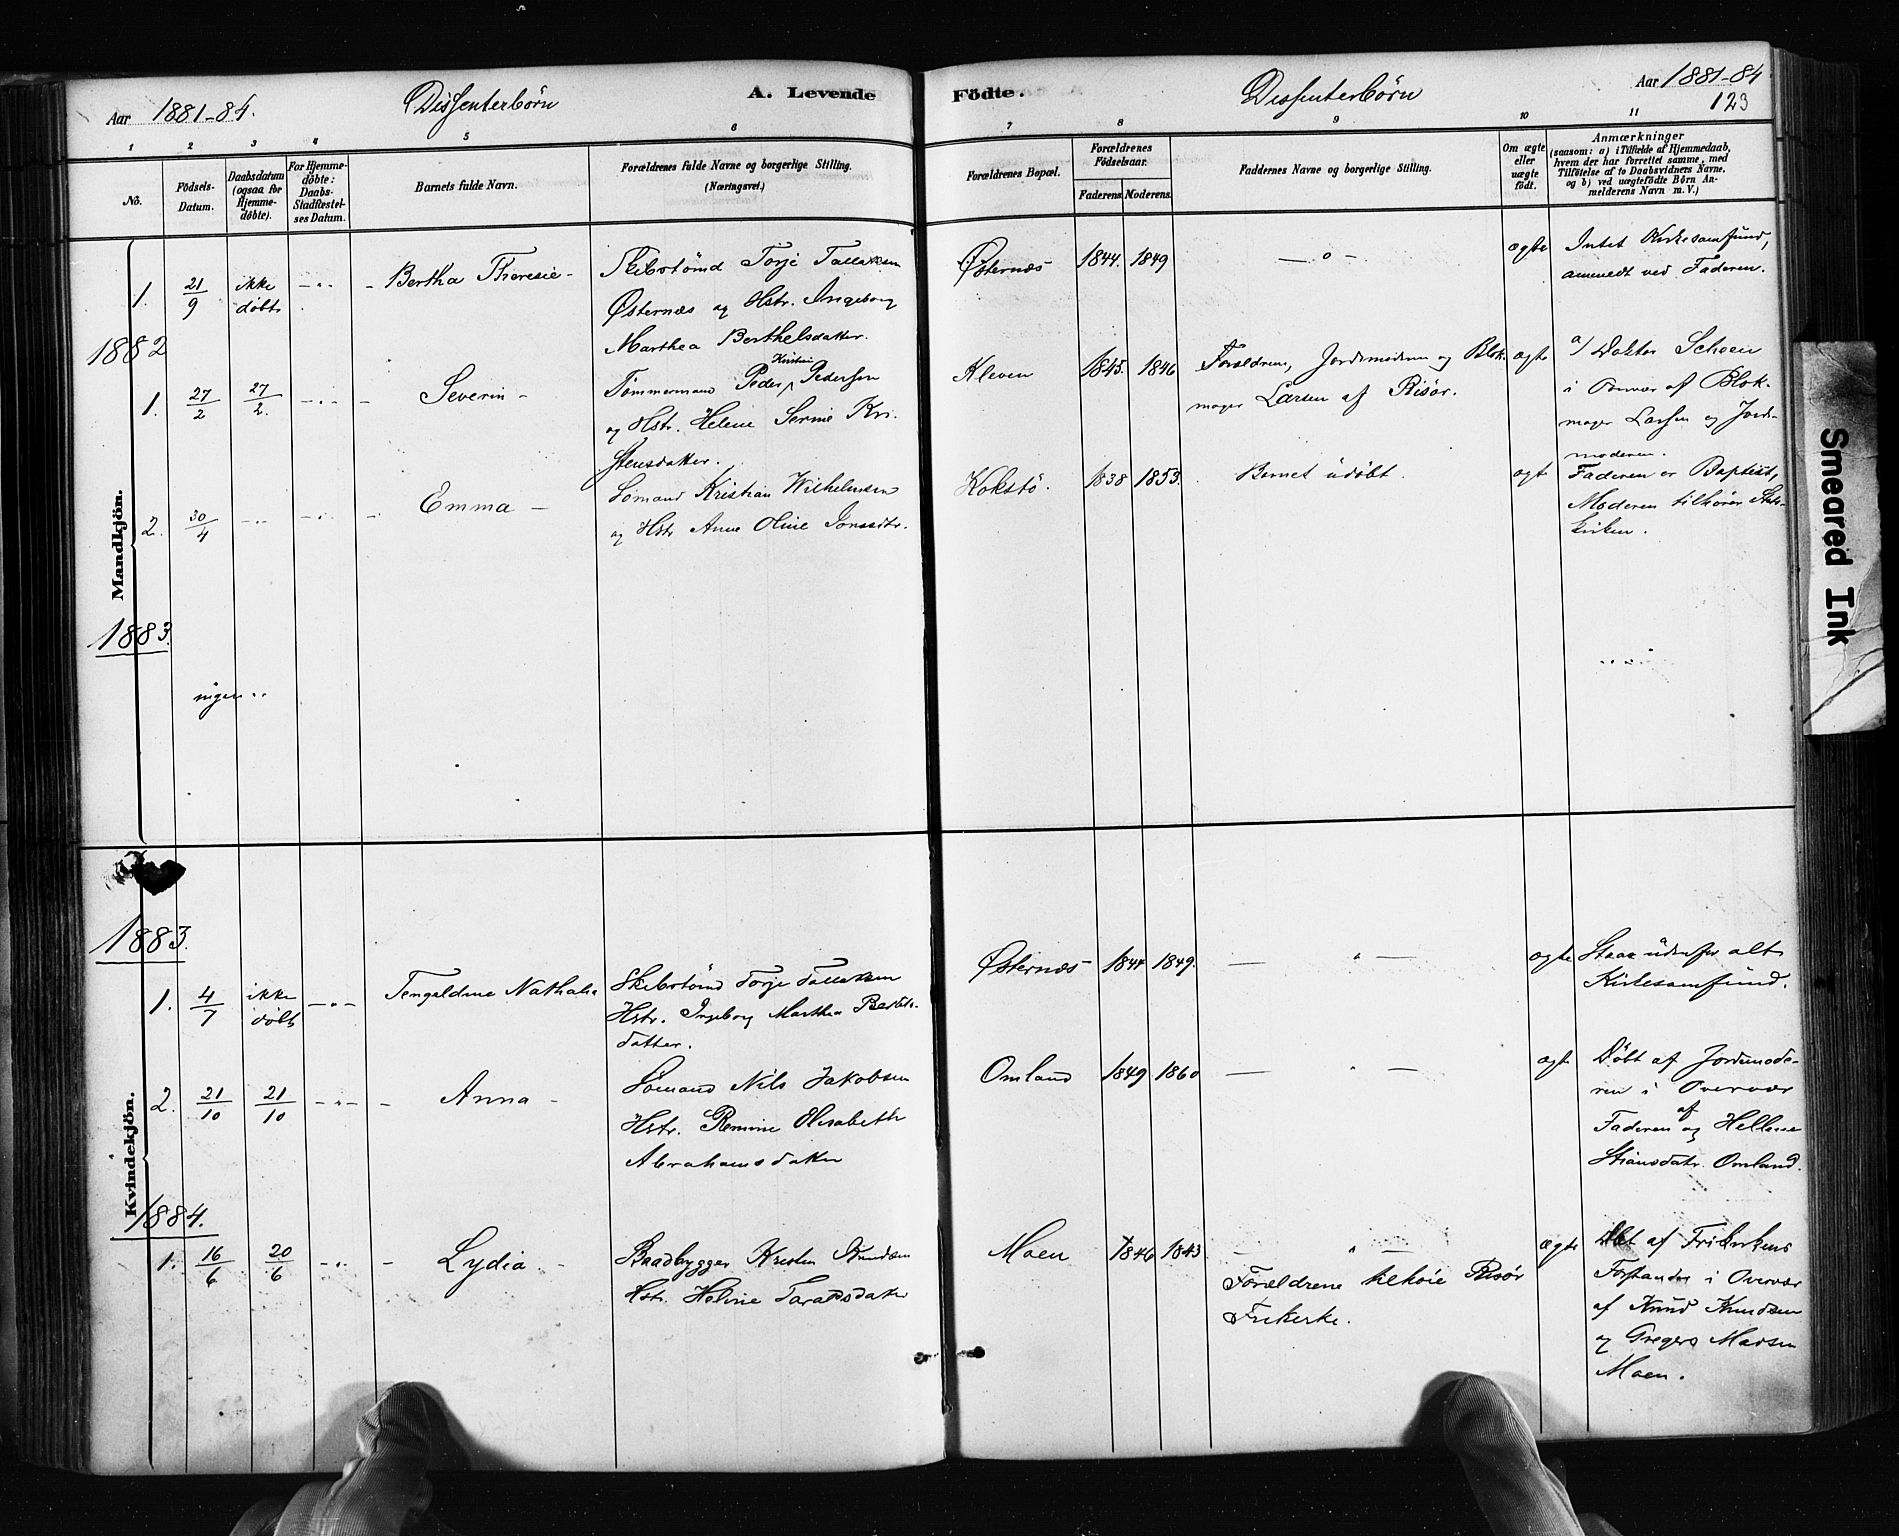 Aar 1881-84. Dissenterbørn A. Levende Födte. Dissenterbørn Aar 1881-84
123
1 2 3 4 5 6 7 8 9 10 11
No. Födsels-Datum. Daabsdatum (ogsaa for Hjemme-döbte). For Hjemme-döbte: Daabs-Stadfæstel-ses Datum. Barnets fulde Navn. Forældrenes fulde Navne og borgerlige Stilling. (Næringsvei.) Forældrenes Bopæl. Forældrenes Födselsaar. Faderens Moderens. Faddernes Navne og borgerlige Stilling. Om ægte eller uægte födt. Anmærkninger (saasom: a) i Tilfælde af Hjemmedaab, hvem der har forrettet samme, med Tilföielse af to Daabsvidners Navne, og b) ved uægtefödte Börn An-melderens Navn m. V.)
Mandkjön.
1. 21/9 ikke døbt Bertha Theresie - Skibstømd Torje Tallaksen
Østernæs og Hstr. Ingeborg
Marthea Berthelsdatter.
Østernæs 1844. 1849 — " — ægte Intet Kirkesamfund,
anmeldt ved Faderen.
1882
1. 27/2 27/2. Severin - Tømmermand Peder Kristian Pedersen
og Hstr. Helene Serine Kri-
stensdatter.
Kleven 1845. 1846 Forældrene, Jordemoderen og Blok-
mager Larsen af Risør. ægte a/ Doktor Scheen
i Overvær af Blok-
mager Larsen og Jord-
moderen.
2. 30/4 Emma - Sømand Kristian Wilhelmsen
og Hstr Anne Oline Jonsdtr.
Kokstø. 1838 1853. Barnet udøbt. ægt Faderen er Baptist,
Moderen tilhører Stats-
kirken.
1883.
ingen
Kvindekjön.
1883.
1. 4/7 ikke døbt Tengeldine Nathalia Skibstømd Torje Tallaksen
Hstr. Ingeborg Marthea Berthels-
datter.
Østernæs 1844 1849. — " — ægte Staar udenfor alt
Kirkesamfund.
2. 21/10 21/10 Anna - Sømand Nils Jakobsen
Hstr. Remine Elisabeth
Abrahamsdatter
Omland 1849 1860 — " — ægte Døbt af Jordemode-
ren i Overvær
af
Faderen og Hellene
Omland.
1884.
1. 16/6 20/6 Lydia - Baadbygger Kristen Knudsen
Hstr. Helene Taraldsdatter
Moen 1846 1843 — " —
Forældrene tilhøie Risør
Frikirke. ægte Døbt af Frikirkens
Forstander i Overvær
af Knud Knudsen
og Gregers Madsen
Moen.
Smeared Ink